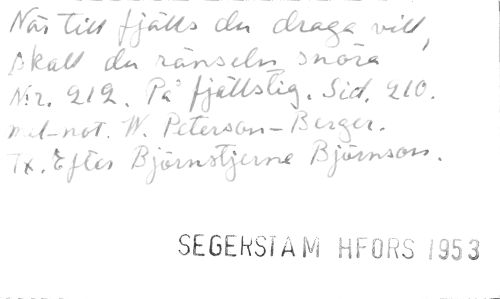 När till fjälls du draga vill,
skall du ränseln snöra
Nr. 212. På fjällstig. Sid. 210.
mel-not. W. Peterson-Berger.
Tx. Efter Björnstjerne Björnson.
SEGERSTAM HFORS 1953